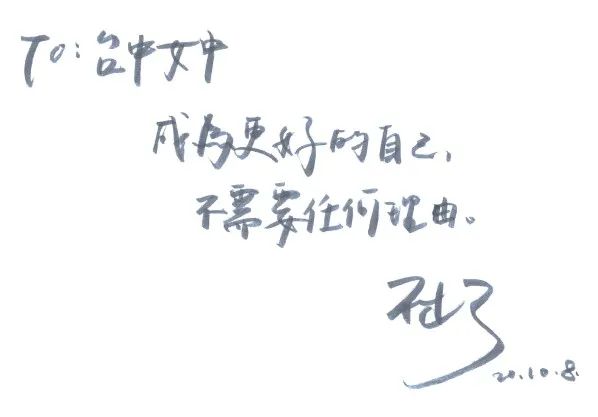 To:台中女中
成為更好的自己,
不需要任何理由。
20.10.8.